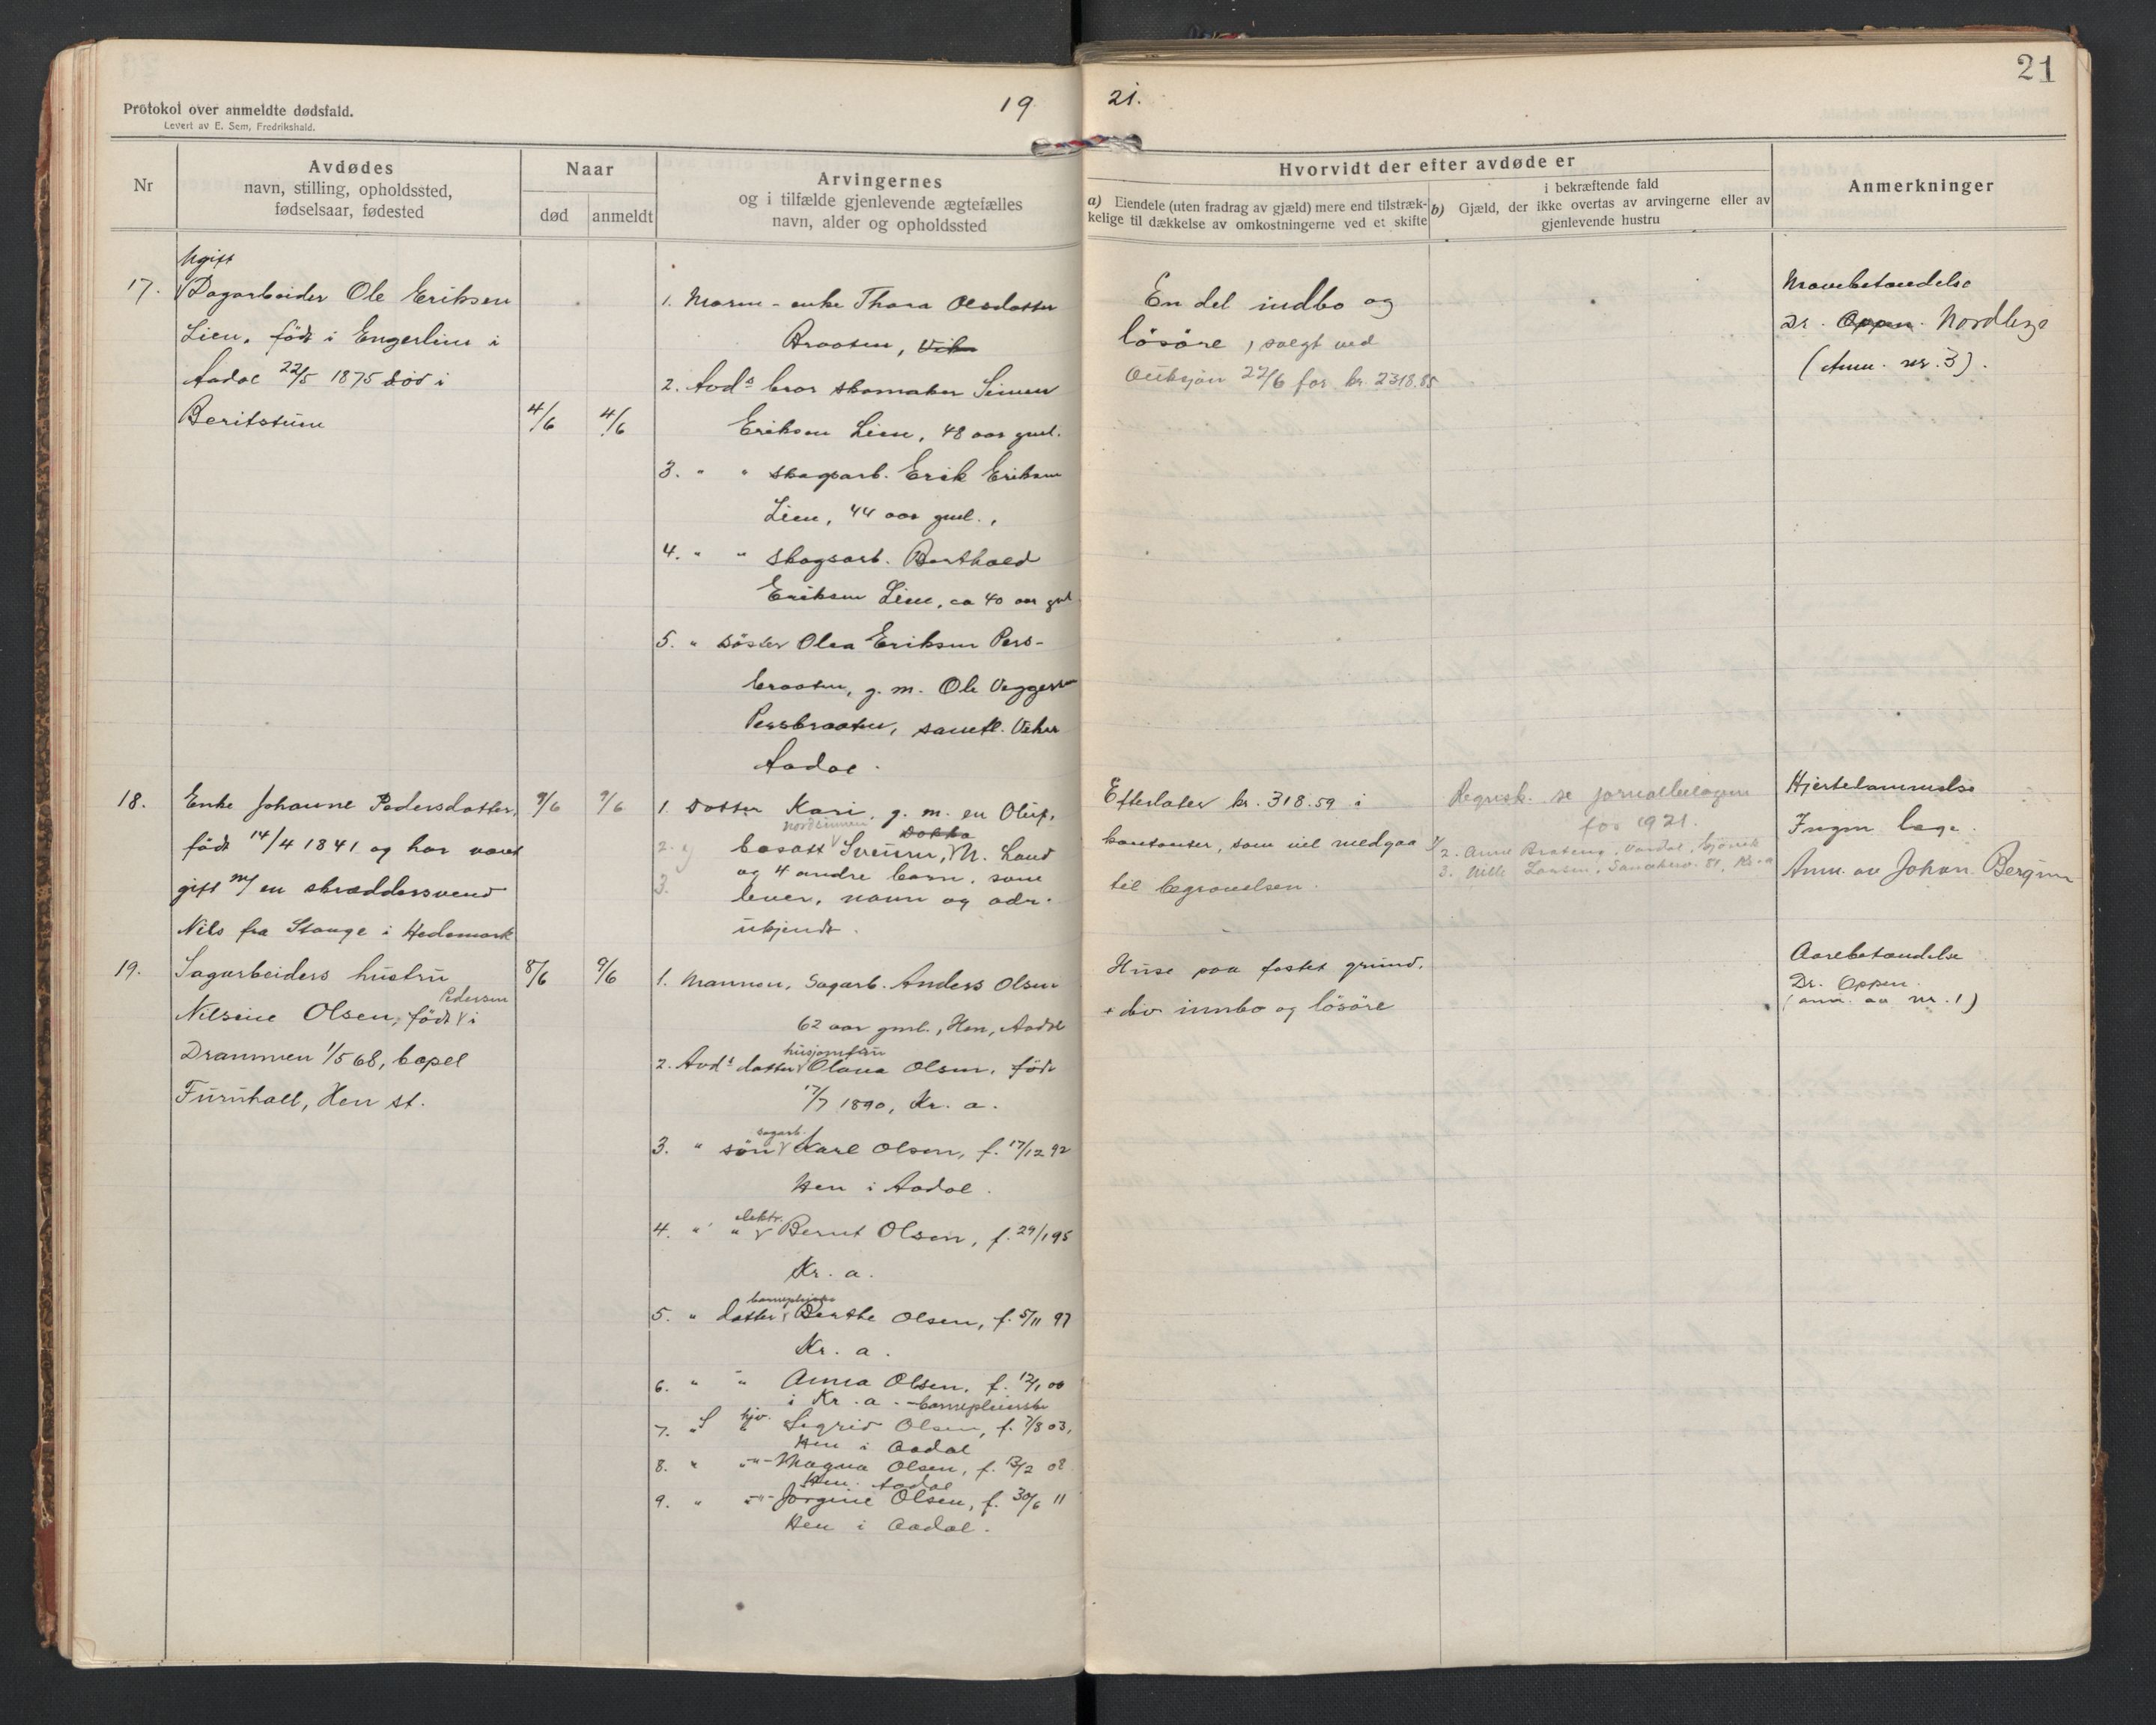 Protokol over anmeldte dødsfald.
Levert av E. Sem, Fredrikshald.
19
21.
21
Nr
Avdødes
navn, stilling, opholdssted,
fødselsaar, fødested
Naar
død
anmeldt
Arvingernes
og i tilfælde gjenlevende ægtefælles
navn, alder og opholdssted
Hvorvidt der efter avdøde er
a) Eiendele (uten fradrag av gjæld) mere end tilstræk-
kelige til dækkelse av omkostningerne ved et skifte
i bekræftende fald
b) Gjæld, der ikke overtas av arvingerne eller av
gjenlevende hustru
Anmerkninger
Ugift
17. Dagarbeider Ole Eriksen
Lien, født i Engerlien i
Aadal 22/5 1875 død i
Beritstuen
4/6
4/6
1. Moren - enke Thora Olsdatter
Braaten, Viker
2. Avds bror skomaker Simen
Eriksen Lien, 48 aar gml.
3. " " skogsarb. Erik Eriksen
Lien, 44 aar gml.,
4. " " skogsarb. Berthold
Eriksen Lien, ca 40 aar gml
5. " søster Olea Eriksen Pers-
braaten, g. m. Ole Veggersen
Persbraaten, samtl. Viker
Aadal.
En del indbo og
løsøre, solgt ved
auksjon 22/6 for kr. 2318.85
Mavebetændelse
Dr. Oppen. Nordlege
(Anm. nr. 3).
18. Enke Johanne Pedersdatter,
født 14/4 1841 og har vært
gift m/ en skræddersvend
Nils fra Stange i Hedemark
9/6
9/6
1. Datter Kari, g. m. en Oluf,
Nordsinnen Dokka
bosatt Svenn, N. Land
2.
og 4 andre barn, som
3.
lever, navn og adr.
ukjendt.
Efterlater kr. 318.59 i
kontanter, som vil medgaa
til begravelsen.
Regnsk. se jornalbilagene
for 1921.
2. Anne Brateng, Vardal, Gjøvik
3. Nille Larsen, 81, Kr.a
Hjertelammelse
Ingen læge.
Anm. av Johan Bergsen
19. Sagarbeiders hustru
Pedersen
Nilsine Olsen, født i
Drammen 1/5 68, bopel
Furuhall, Hen st.
8/6
9/6
1. Mannen, Sagarb. Anders Olsen
62 aar gml., Hen, Aadal
husjomfru
2. Avds datter Olava Olsen, født
17/7 1890, Kr. a.
sagarb.
3. " søn Karl Olsen, f. 17/12 92
Hen i Aadal.
elektr.
4. " " Bernt Olsen, f. 29/1 95
Kr. a.
barnepleierske
5. " datter Berthe Olsen, f. 5/11 97
Kr. a.
6. " " Anna Olsen, f. 12/1 00
i Kr. a. - barnepleierske
7. " hjv. Sigrid Olsen, f. 7/8 03,
Hen i Aadal
8. " -"- Magna Olsen, f. 13/2 08
Hen. Aadal
9. " -"- Jørgine Olsen, f. 30/6 11
Hen i Aadal.
Huse paa festet grund,
+ div. innbo og løsøre
Aarebetændelse
Dr. Oppen.
(anm. av nr. 1)